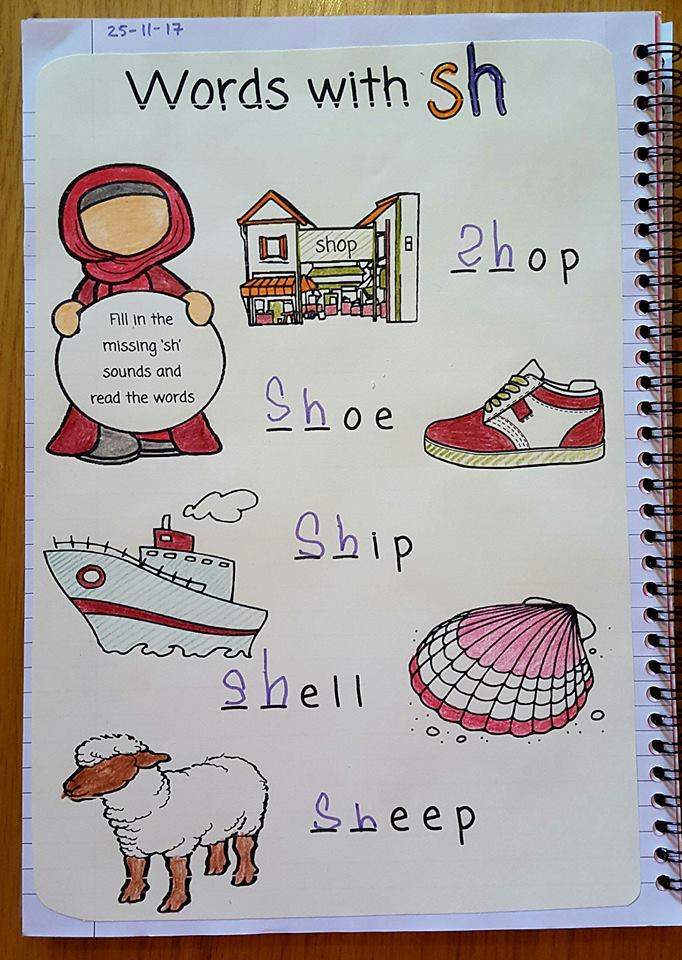 25-11-17
Words with sh
shop
Shop
Fill in the
missing 'sh'
sounds and
read the words
Shoe
Ship
shell
Sheep